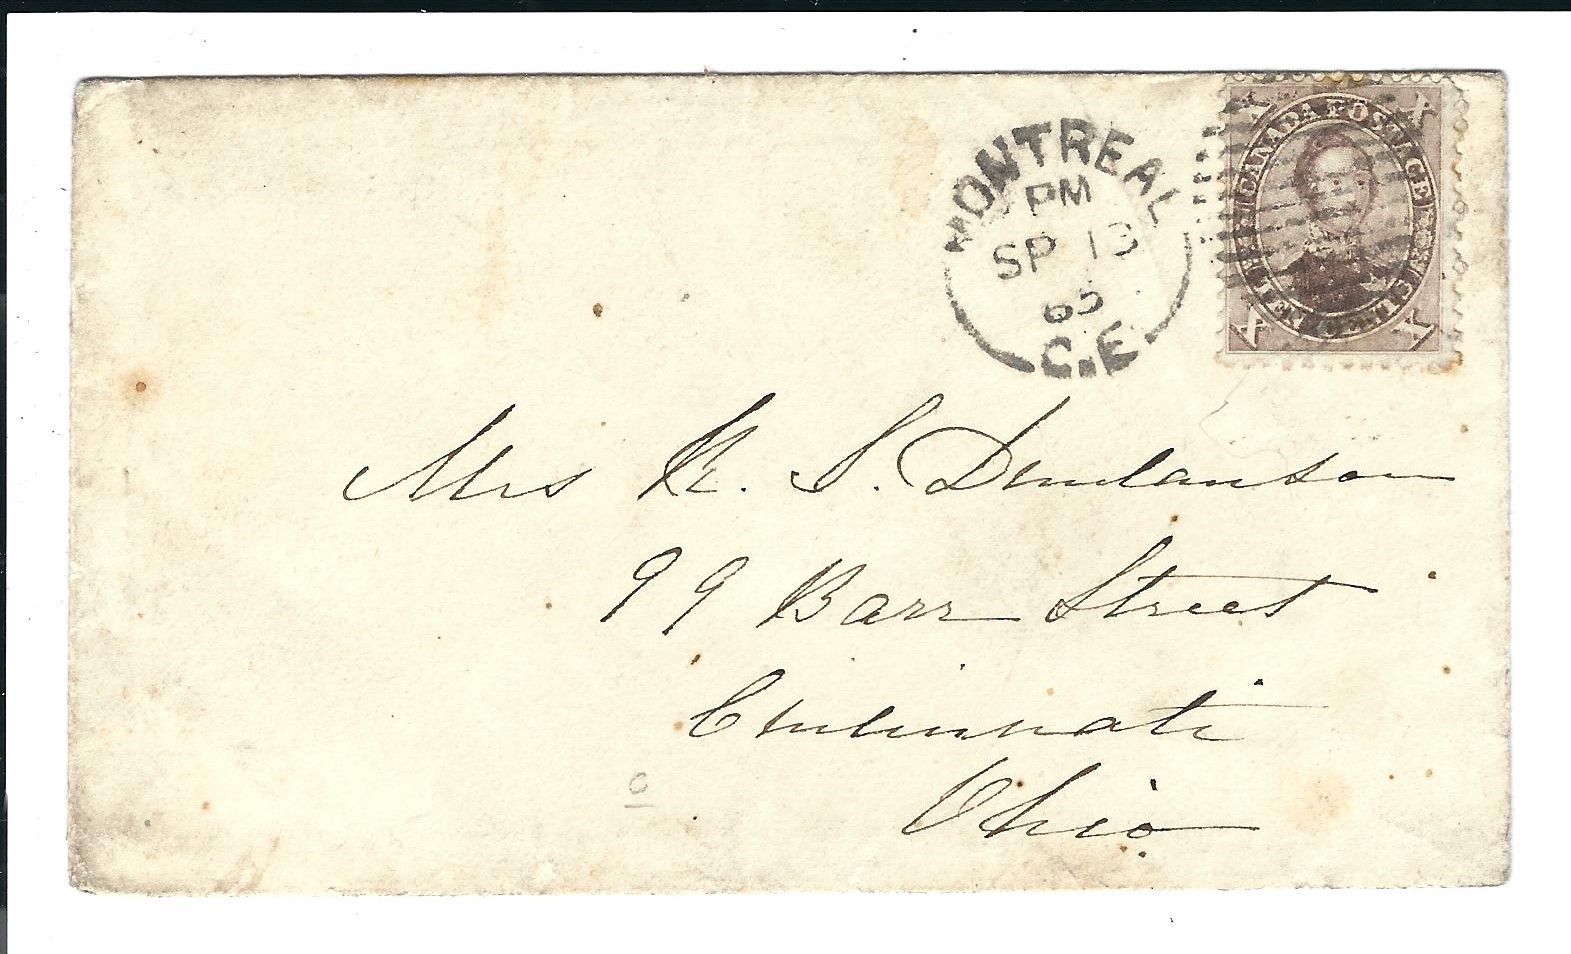 MONTREAL
PM
SP 13
65
C.E.
X X
CANADA POSTAGE
TEN CENTS
X X
Mrs R. S.
99 Barr Street
Cincinnati
Ohio